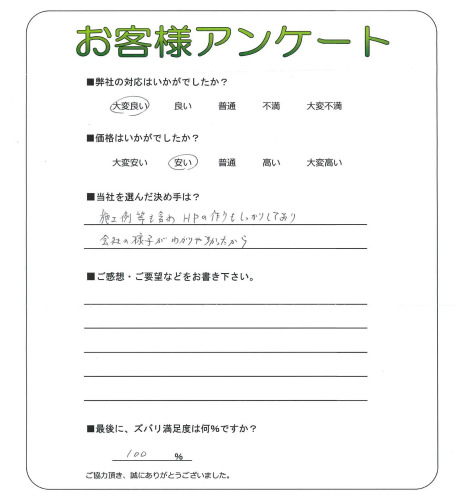 お客様アンケート
■弊社の対応はいかがでしたか？
大変良い 良い 普通 不満 大変不満
■価格はいかがでしたか？
大変安い 安い 普通 高い 大変高い
■当社を選んだ決め手は？
施工例等も含め HPの作りもしっかりしており
会社の様子がわかりやすかったから
■ご感想・ご要望などをお書き下さい。
■最後に、ズバリ満足度は何%ですか？
100 %
ご協力頂き、誠にありがとうございました。